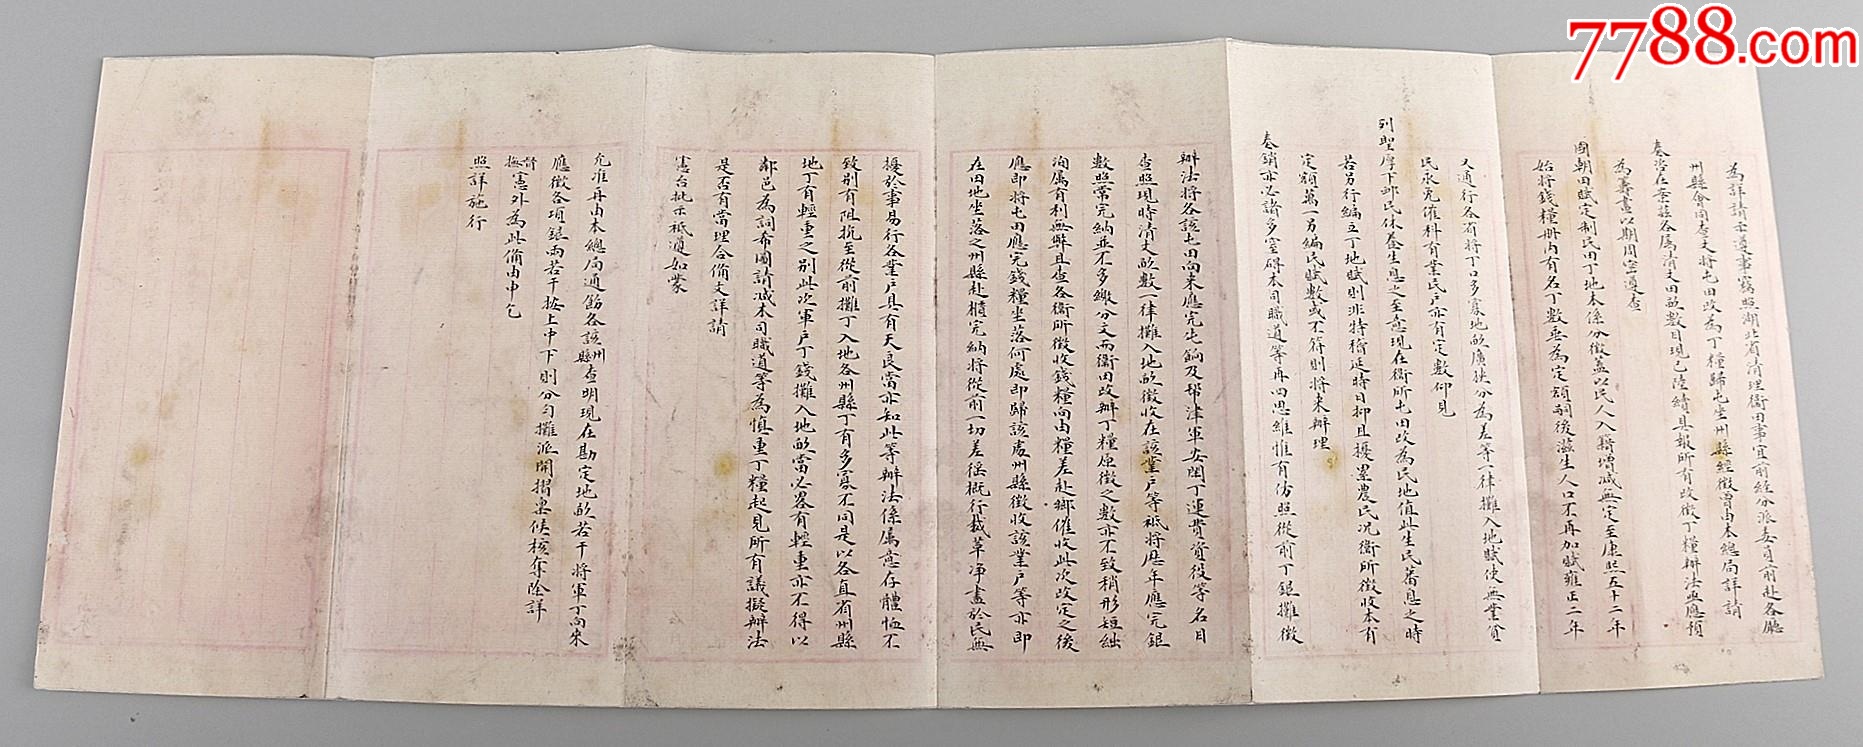 7788.com
為詳請示遵事竊照湖北省清理衛田事宜前經分派委員前赴各廳
州縣會同查丈將屯田改為丁糧歸屯坐州縣經徵曾由本總局詳請
奏咨在案茲各屬清丈田畝數目現已陸續具報所有改徵丁糧辦法亟應預
為籌畫以期周密遵查
國朝田賦定制民田丁地本係分徵蓋以民人入籍增減無定至康熙五十二年
始將錢糧冊內有名丁數垂為定額嗣後滋生人口不再加賦雍正二年
又通行各省將丁口多寡地畝廣狹分為差等一律攤入地賦使無業貧
民永免催科有業民戶亦有定數仰見
列聖厚下邮民休養生息之至意現在衛所屯田改為民地值此生民蕃息之時
若另行編立丁地賦則非特稽延時日抑且擾累農民况衛所徵收本有
定額萬一另編民賦數或不符則將來辦理
奏銷亦必諸多窒碍本司職道等再四思維惟有仿照從前丁銀攤徵
辦法將各該屯田向來應完屯餉及幫津軍安閑丁運費資役等名目
查照現時清丈畝數一律攤入地畝徵收在該業戶等祗將歷年應完銀
數照常完納並不多繳分文而衛田改辦丁糧原徵之數亦不致稍形短絀
洵屬有利無弊且查各衛所徵收錢糧向由糧差赴鄉催收此次改定之後
應即將屯田應完錢糧坐落何處即歸該處州縣徵收該業戶等亦即
在田地坐落之州縣赴櫃完納將從前一切差徭概行裁革淨盡於民無
擾於事易行各業戶具有天良當亦知此等辦法係屬意存體恤不
致別有阻抗至從前攤丁入地各州縣丁有多寡不同是以各直省州縣
地丁有輕重之別此次軍戶丁錢攤入地畝當必畧有輕重亦不得以
鄰邑為詞希圖請減本司職道等為慎重丁糧起見所有議擬辦法
是否有當理合備文詳請
憲台批示祗遵如蒙
允准再由本總局通飭各該州縣查明現在勘定地畝若干將軍丁向來
應徵各項銀兩若干按上中下則分勻攤派開摺呈候核奪除詳
督撫憲外為此備由申乞
照詳施行